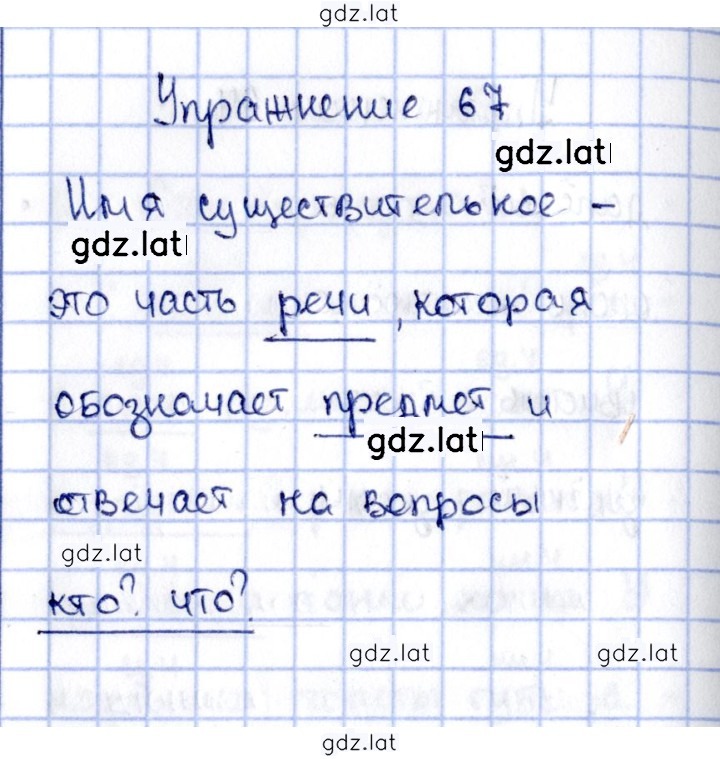 gdz.lat
Упражнение 67
gdz.lat
Имя существительное -
gdz.lat
это часть речи, которая
обозначает предмет и
gdz.lat
отвечает на вопросы
gdz.lat
кто? что?
gdz.lat gdz.lat
gdz.lat